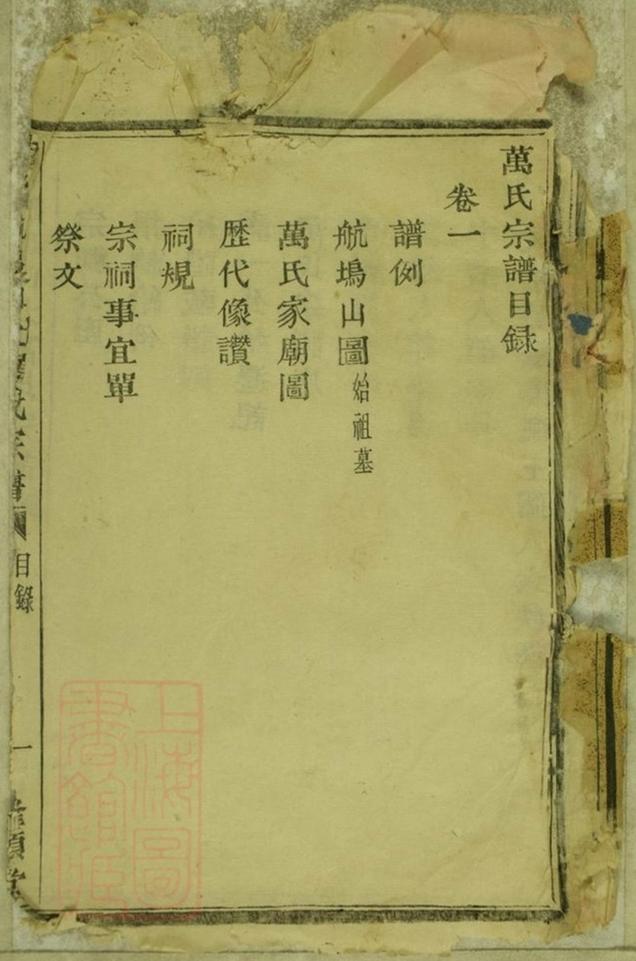 萬氏宗譜目録
卷一
譜例
航塢山圖始祖墓
萬氏家廟圖
歷代像讚
祠規
宗祠事宜單
祭文
宗譜
目錄
一
上海圖
書館藏